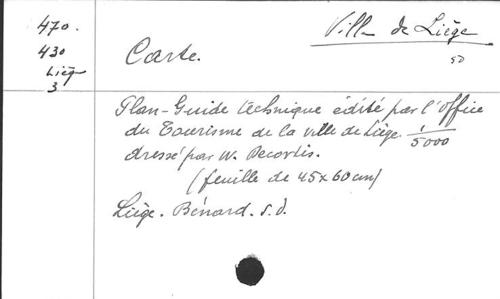 470.
430
Liég
3
Ville de Liège
SD
Carte.
Plan-Guide technique édité par l'Office
du Tourisme de la ville de Liège. 1/5000
dressé par W. Decortis.
(feuille de 45x60cm)
Liège. Bénard. s.d.